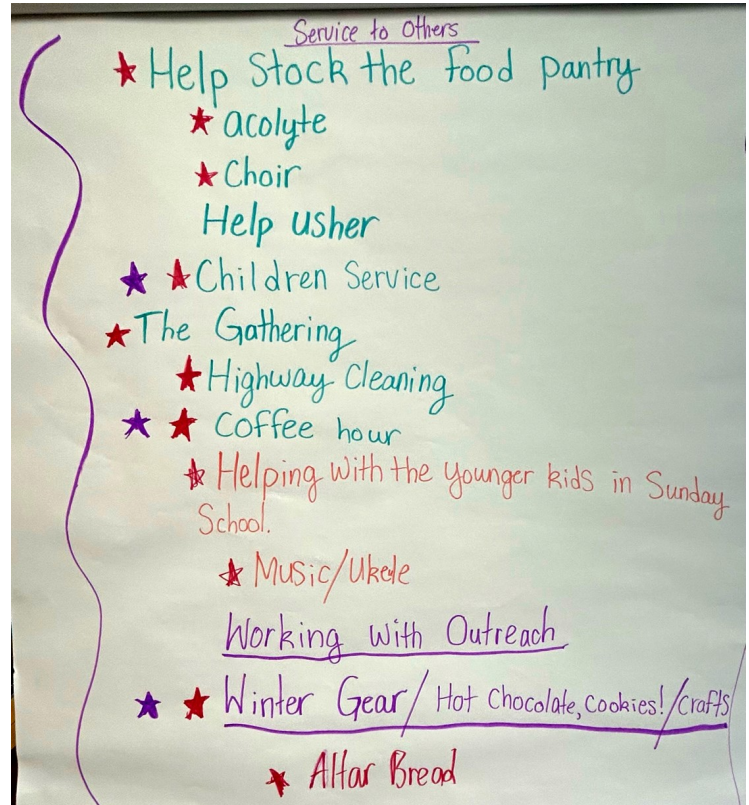 Service to Others
Help Stock the food pantry
acolyte
Choir
Help usher
Children Service
The Gathering
Highway Cleaning
Coffee hour
Helping with the younger kids in Sunday
School.
Music/Ukele
Working with Outreach
Winter Gear/Hot Chocolate, Cookies!/Crafts
Altar Bread